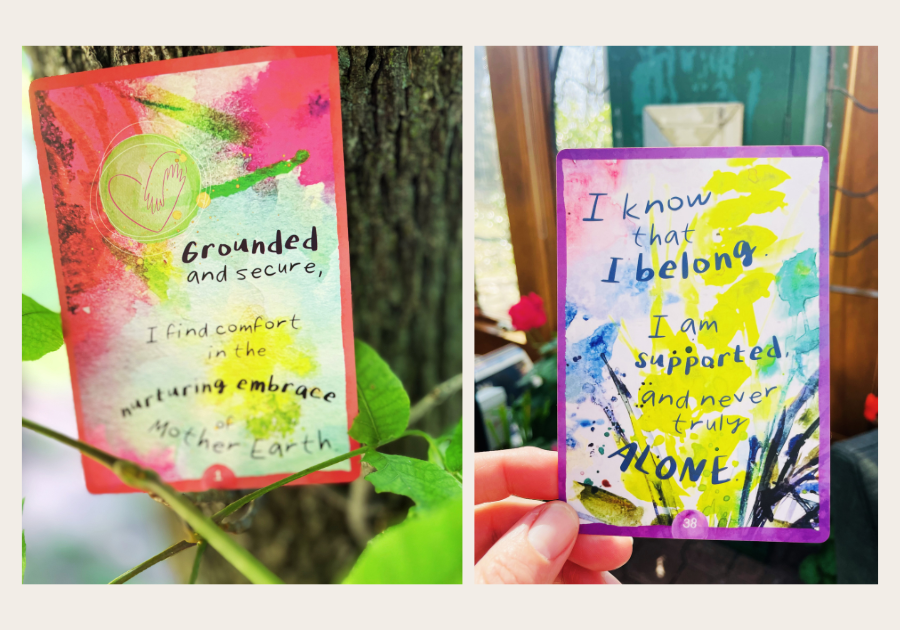 Grounded
and secure,
I find comfort
in the
nurturing embrace
of
Mother Earth.
1
I know
that
I belong.
I am
supported,
and never
truly
ALONE.
38